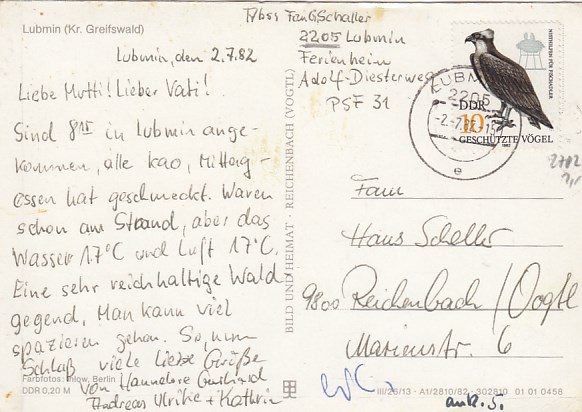 Lubmin (Kr. Greifswald)
Lubmin, den 2.7.82
Liebe Mutti! Lieber Vati!
Sind 8 15 in Lubmin ange-
kommen, alle kao, Mittag-
essen hat geschmeckt. Waren
schon am Strand, aber das
Wasser 17°C und Luft 17°C.
Eine sehr reichhaltige Wald
gegend, Man kann viel
spazieren gehen. So, nun
Schluß viele liebe Grüße
von Hannelore
Andreas Ulrike + Kathrin
Farbfotos: Ihlow, Berlin
DDR 0,20 M
BILD UND HEIMAT · REICHENBACH (VOGTL)
Schaller
2205 Lubmin
Ferienheim
Adolf-Diesterweg
PSF 31
LUBMIN
2205
-2.-7.82-15
e
DDR
10
GESCHÜTZTE VÖGEL
Fam
Hans Scheller
9800 Reichenbach/Vogtl
Marienstr. 6
III/26/13 · A1/2810/82 · 302810 01 01 0458
ank. 5.